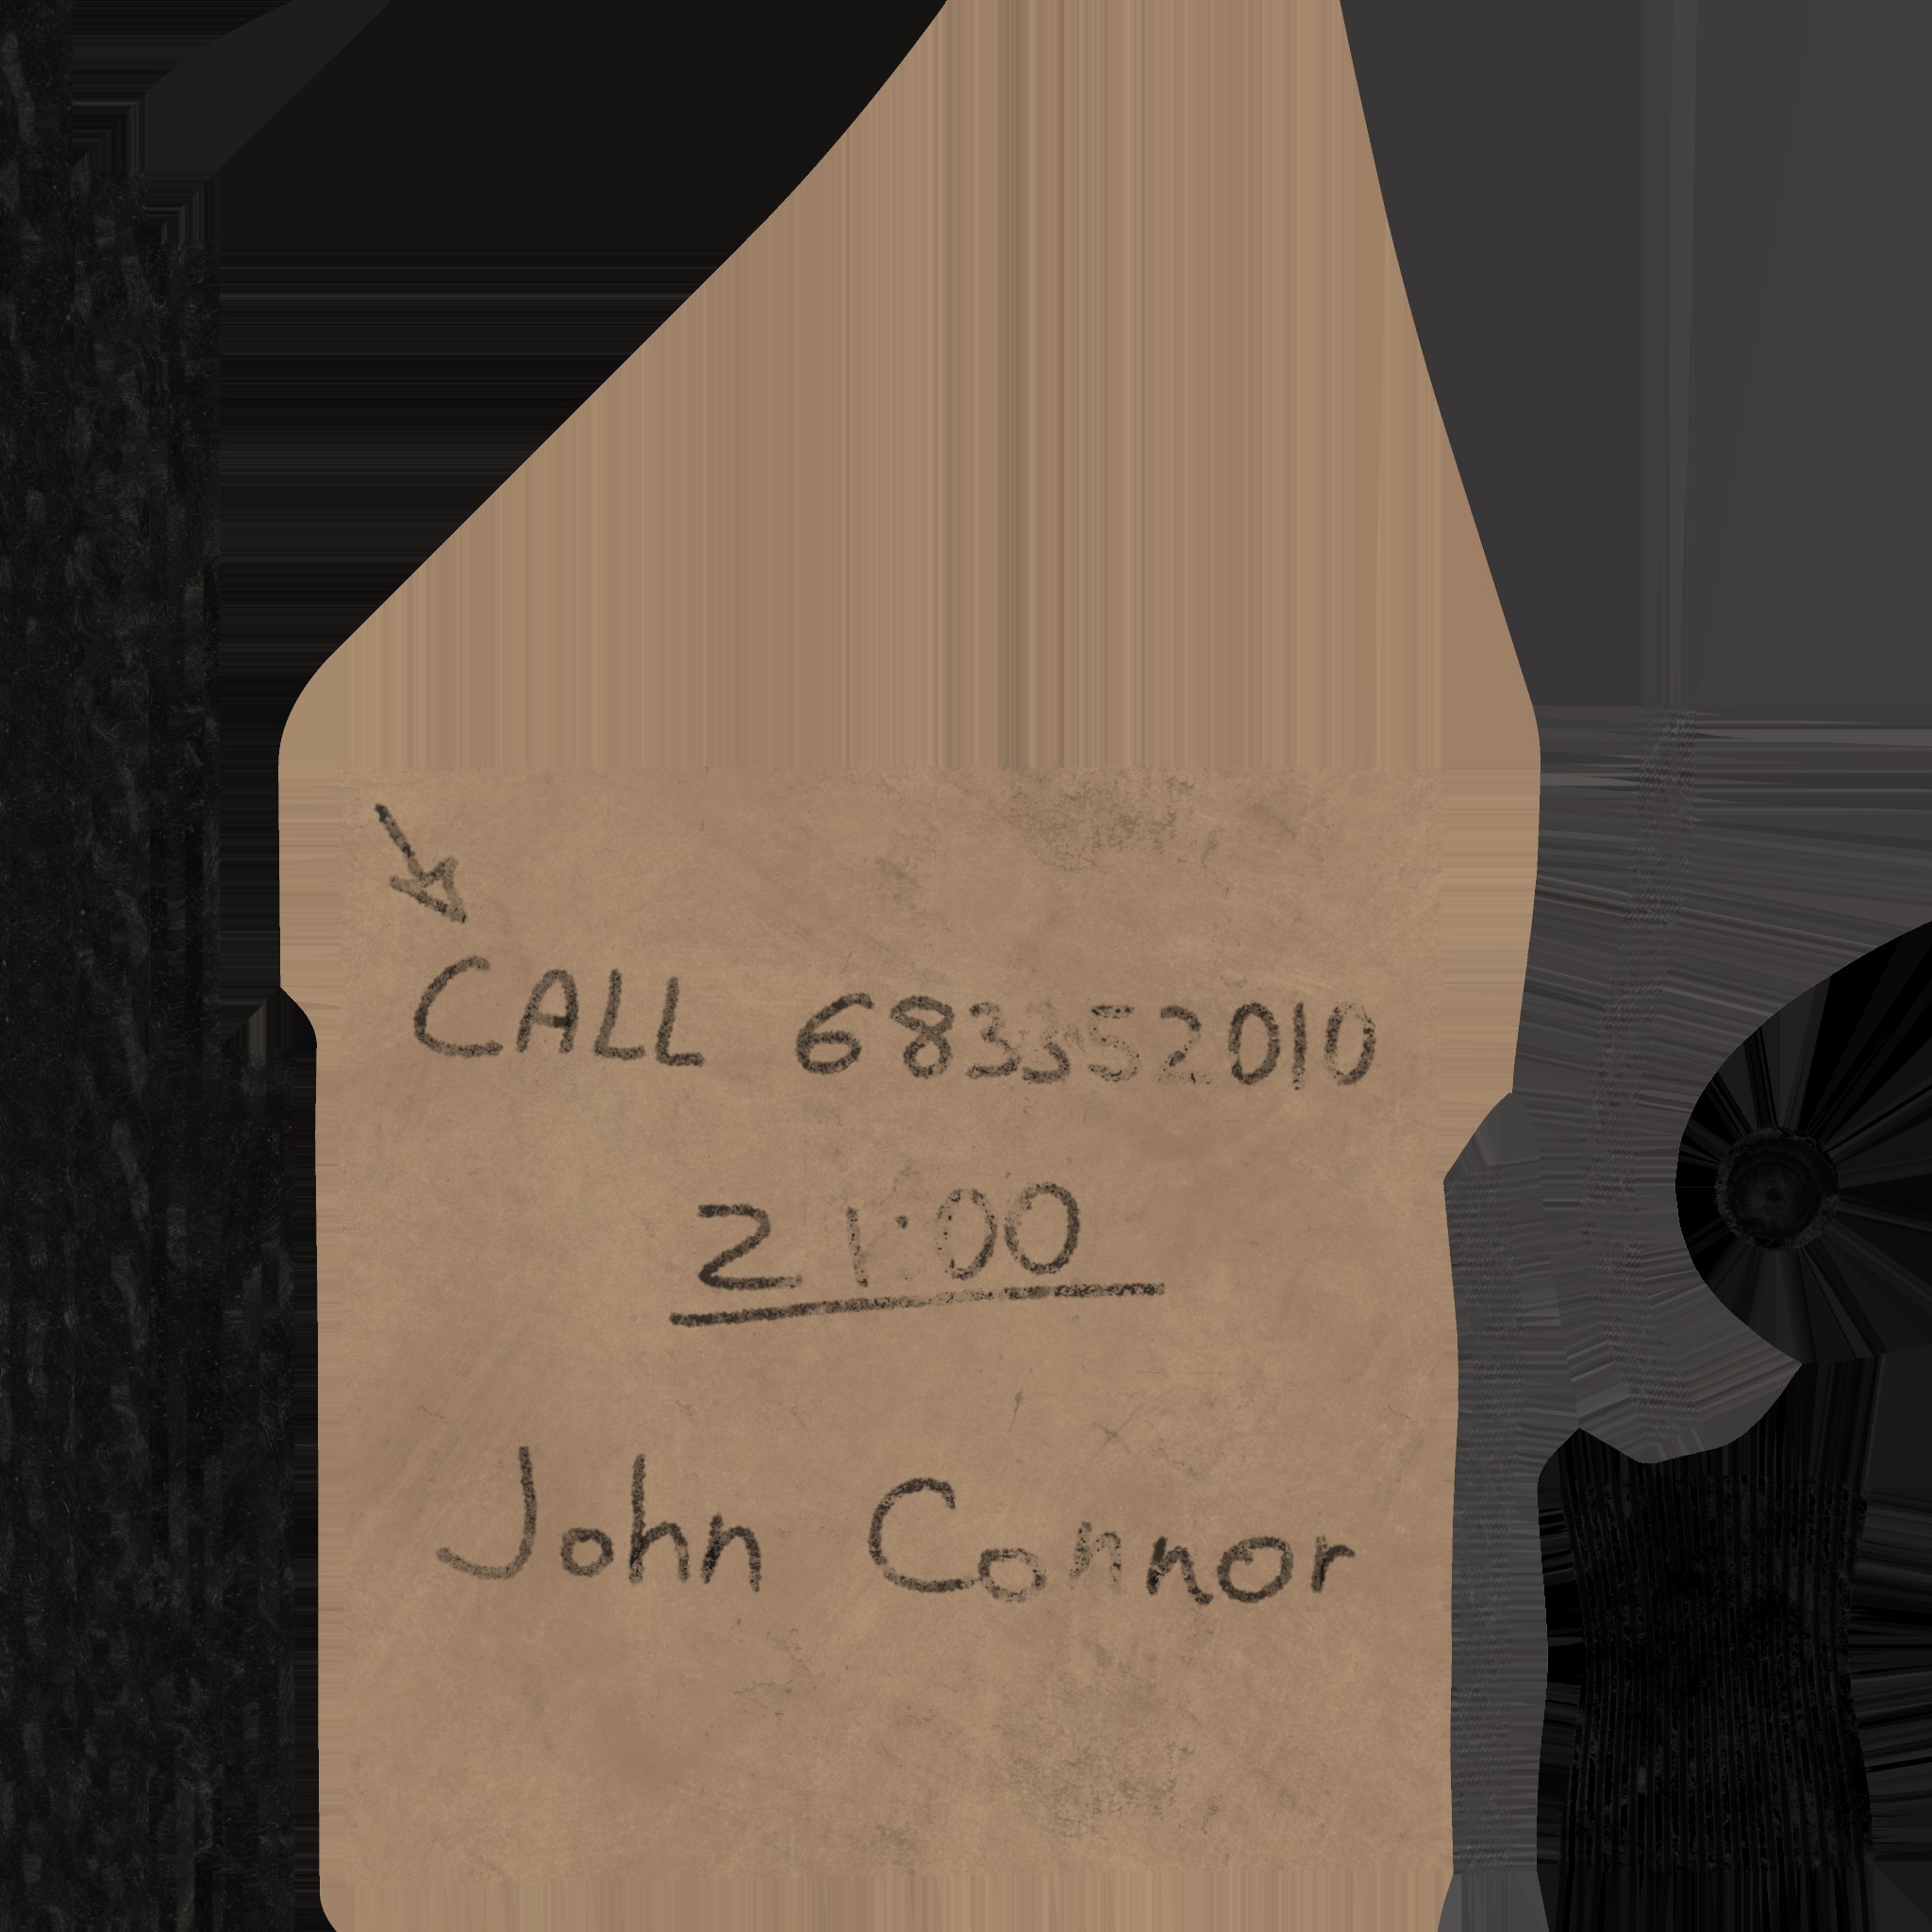 CALL 683352010
21:00
John Connor